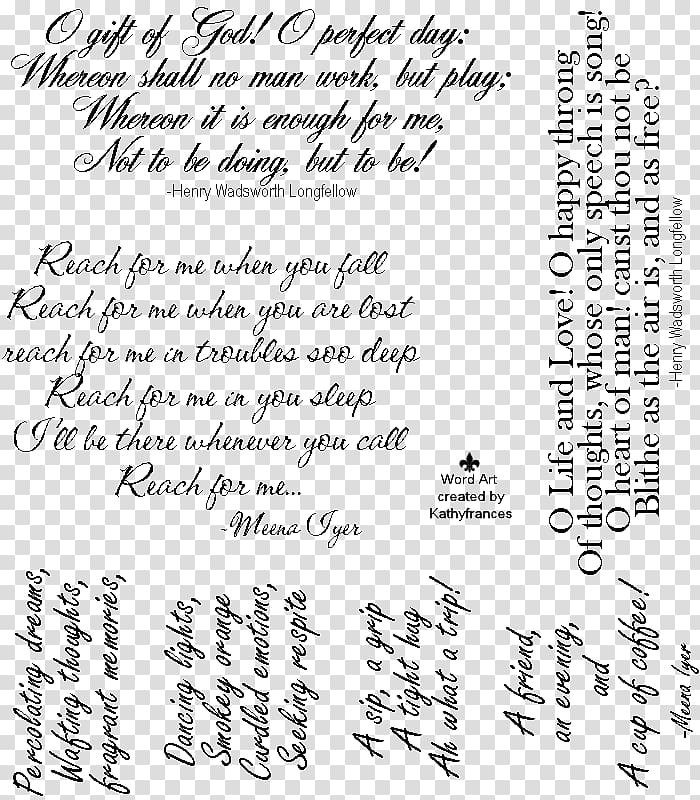 O gift of God! O perfect day:
Whereon shall no man work, but play;
Whereon it is enough for me,
Not to be doing, but to be!
-Henry Wadsworth Longfellow
O Life and Love! O happy throng
Of thoughts, whose only speech is song!
O heart of man! canst thou not be
Blithe as the air is, and as free?
-Henry Wadsworth Longfellow
Reach for me when you fall
Reach for me when you are lost
reach for me in troubles soo deep
Reach for me in you sleep
I'll be there whenever you call
Reach for me...
-Meena Iyer
Word Art
created by
Kathyfrances
Percolating dreams,
Wafting thoughts,
fragrant memories,
Dancing lights,
Smokey orange
Curdled emotions,
Seeking respite
A sip, a grip
A tight hug
Ah what a trip!
A friend,
an evening,
and
A cup of coffee!
-Meena Iyer